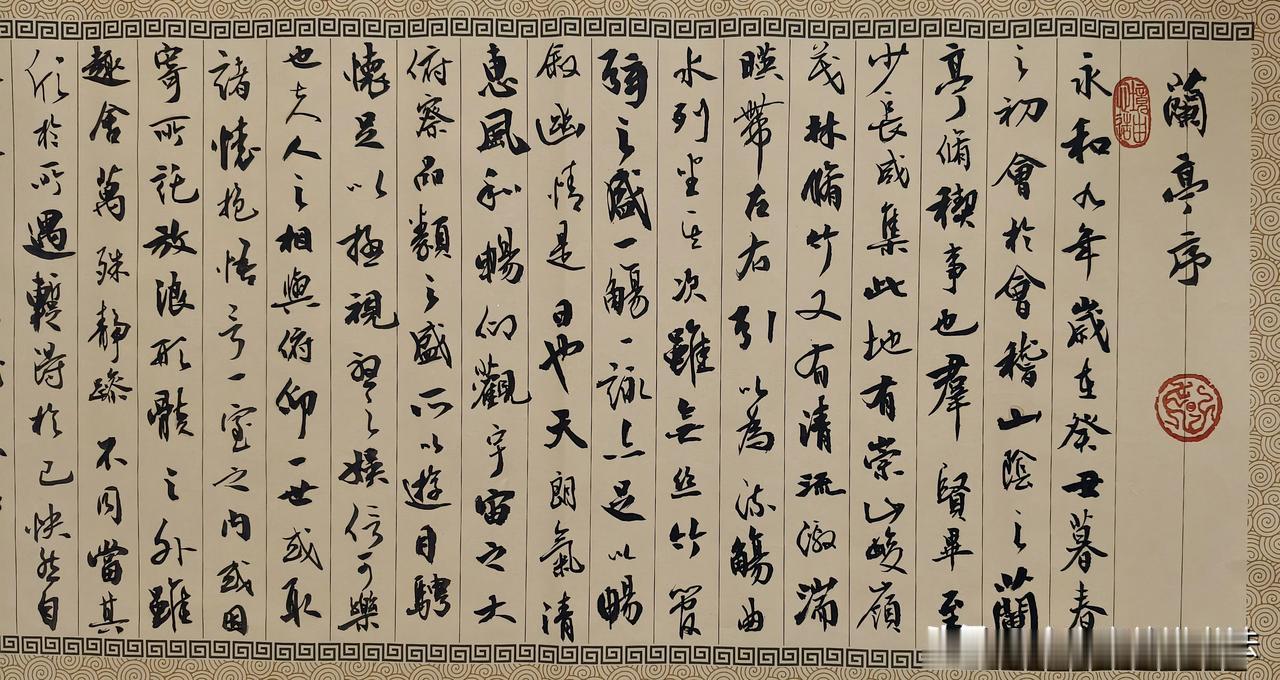 蘭亭序
境由心造
永和九年歲在癸丑暮春
之初會於會稽山陰之蘭
亭脩稧事也羣賢畢至
少長咸集此地有崇山峻嶺
茂林脩竹又有清流激湍
暎帶左右引以為流觴曲
水列坐其次雖無絲竹管
弦之盛一觴一詠亦足以暢
敘幽情是日也天朗氣清
惠風和暢仰觀宇宙之大
俯察品類之盛所以遊目騁
懷足以極視聽之娛信可樂
也夫人之相與俯仰一世或取
諸懷抱悟言一室之內或因
寄所託放浪形骸之外雖
趣舍萬殊靜躁不同當其
欣於所遇暫得於己快然自